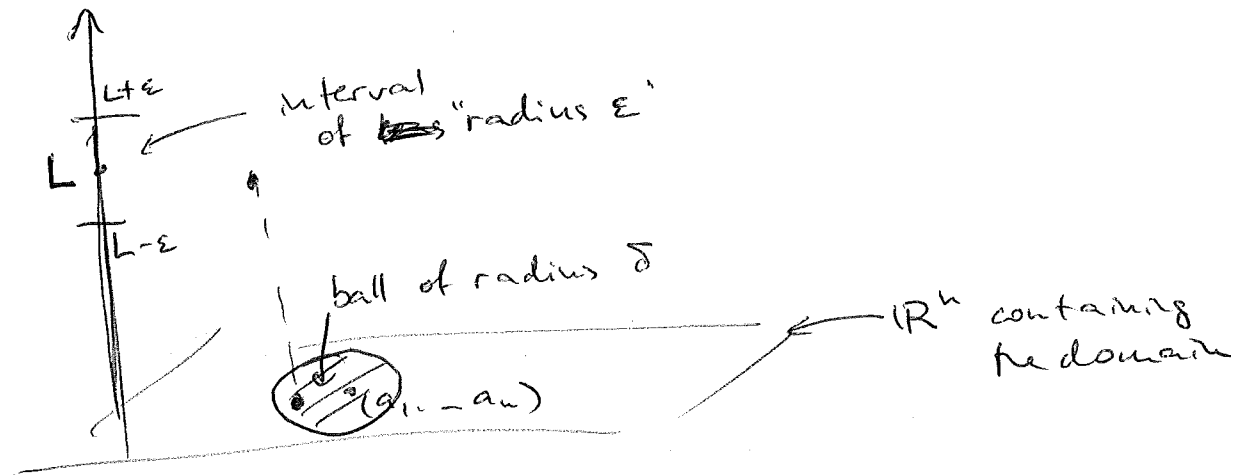 L+ε
interval
of "radius ε"
L
L-ε
ball of radius δ
ℝⁿ containing
the domain
(a₁, ... aₙ)